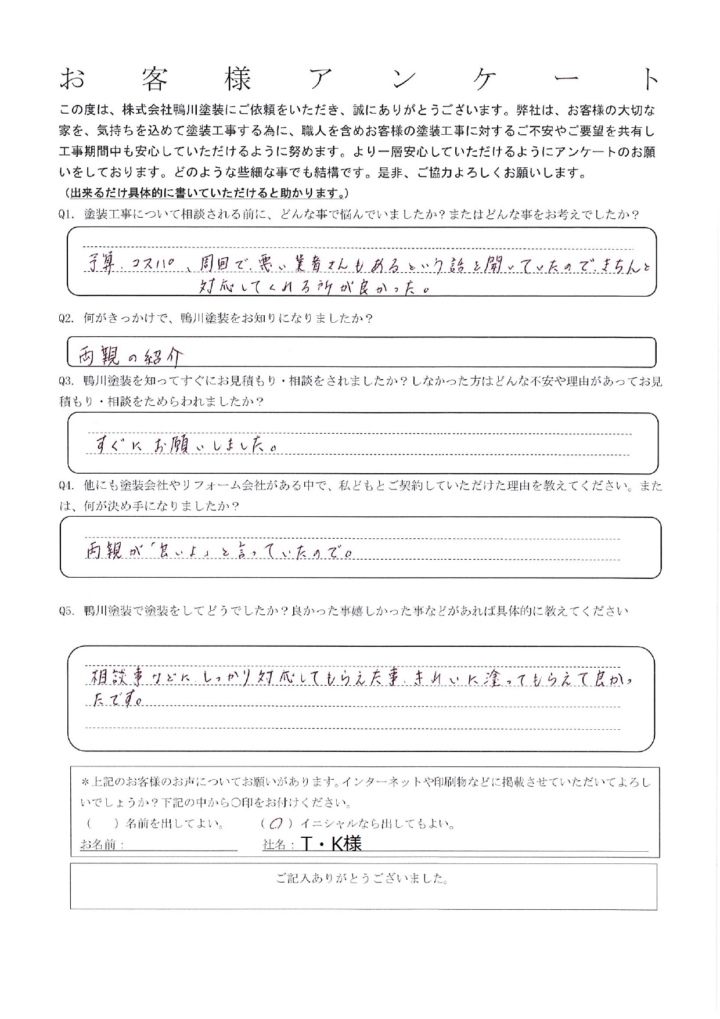 お客様アンケート
この度は、株式会社鴨川塗装にご依頼をいただき、誠にありがとうございます。弊社は、お客様の大切な
家を、気持ちを込めて塗装工事する為に、職人を含めお客様の塗装工事に対するご不安やご要望を共有し
工事期間中も安心していただけるように努めます。より一層安心していただけるようにアンケートのお願
いをしております。どのような些細な事でも結構です。是非、ご協力よろしくお願いします。
（出来るだけ具体的に書いていただけると助かります。）
Q1. 塗装工事について相談される前に、どんな事で悩んでいましたか？またはどんな事をお考えでしたか？
予算、コスパ、周囲で、悪い業者さんもあるという話を聞いていたので、きちんと
対応してくれる所が良かった。
Q2. 何がきっかけで、鴨川塗装をお知りになりましたか？
両親の紹介
Q3. 鴨川塗装を知ってすぐにお見積もり・相談をされましたか？しなかった方はどんな不安や理由があってお見
積もり・相談をためらわれましたか？
すぐにお願いしました。
Q4. 他にも塗装会社やリフォーム会社がある中で、私どもとご契約していただけた理由を教えてください。また
は、何が決め手になりましたか？
両親が「良いよ」と言っていたので。
Q5. 鴨川塗装で塗装をしてどうでしたか？良かった事嬉しかった事などがあれば具体的に教えてください
相談事などにしっかり対応してもらえた事、きれいに塗ってもらえて良かっ
たです。
＊上記のお客様のお声についてお願いがあります。インターネットや印刷物などに掲載させていただいてよろし
いでしょうか？下記の中から○印をお付けください。
（　）名前を出してよい。　（○）イニシャルなら出してもよい。
お名前：　社名：T・K様
ご記入ありがとうございました。